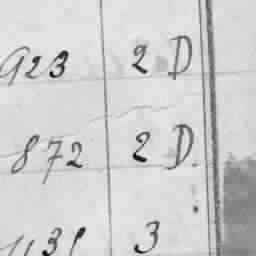 923 2 D
872 2 D.
3